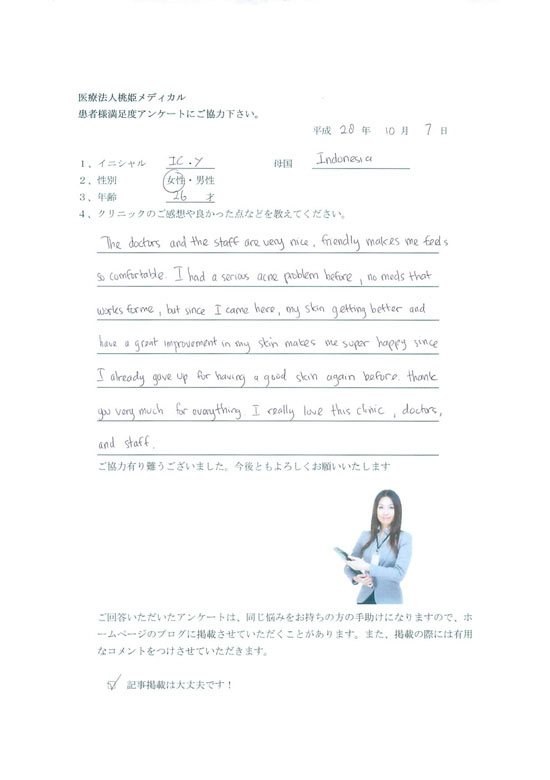 医療法人桃姫メディカル
患者様満足度アンケートにご協力下さい。
平成 28 年 10 月 7 日
1、イニシャル IC.Y 母国 Indonesia
2、性別 女性・男性
3、年齢 26 才
4、クリニックのご感想や良かった点などを教えてください。
The doctors and the staff are very nice. friendly makes me feels
so comfortable. I had a serious acne problem before, no meds that
works for me, but since I came here, my skin getting better and
have a great improvement in my skin makes me super happy since
I already gave up for having a good skin again before. thank
you very much for everything. I really love this clinic, doctors,
and staff.
ご協力有り難うございました。今後ともよろしくお願いいたします
ご回答いただいたアンケートは、同じ悩みをお持ちの方の手助けになりますので、ホ
ームページのブログに掲載させていただくことがあります。また、掲載の際には有用
なコメントをつけさせていただきます。
☑ 記事掲載は大丈夫です！